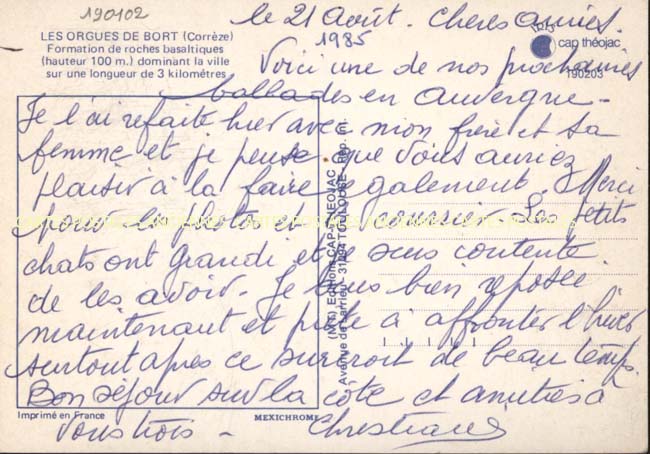 190102
le 21 Août. Chères amies.
1985
LES ORGUES DE BORT (Corrèze)
Formation de roches basaltiques
(hauteur 100 m.) dominant la ville
sur une longueur de 3 kilomètres
cap théojac
190203
Voici une de nos prochaines
ballades en Auvergne -
Je l'ai refaite hier avec mon frère et sa
femme et je pense que vous auriez
plaisir à la faire également. Merci
pour les photos et Les petits
chats ont grandi et je suis contente
de les avoir. Je suis bien reposée
maintenant et prête à affronter l'hiver
surtout après ce surcroit de beau temps.
Bon séjour sur la côte et amitiés à
vous trois - Christiane
(M.T.) Editions CAP-THEOJAC
Avenue de Larrieu - 31094 TOULOUSE - Rép. int.
Imprimé en France
MEXICHROME